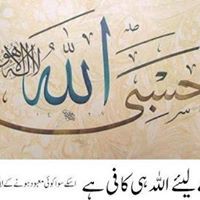 حسبى الله لا إله إلا هو
لیئے اللہ ہی کافی ہے اسکے سوا کوئی معبود ہونے کے